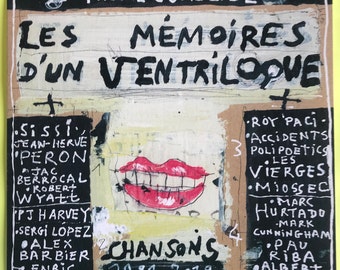 LES MÉMOIRES
D'UN VENTRILOQUE
• SISSI •
JEAN-HERVÉ
PERON
• JAC
BERROCAL
• ROBERT
WYATT
• PJ HARVEY
• SERGI LÓPEZ
• ALEX
BARBIER
• ENRIC
CHANSONS
3
4
ROY PACI •
• ACCIDENTS
POLIPOÈTICS
LES
VIERGES •
• MIOSSEC •
• MARC
HURTADO
• MARK
CUNNINGHAM •
• PAU
RIBA
• ALBERT